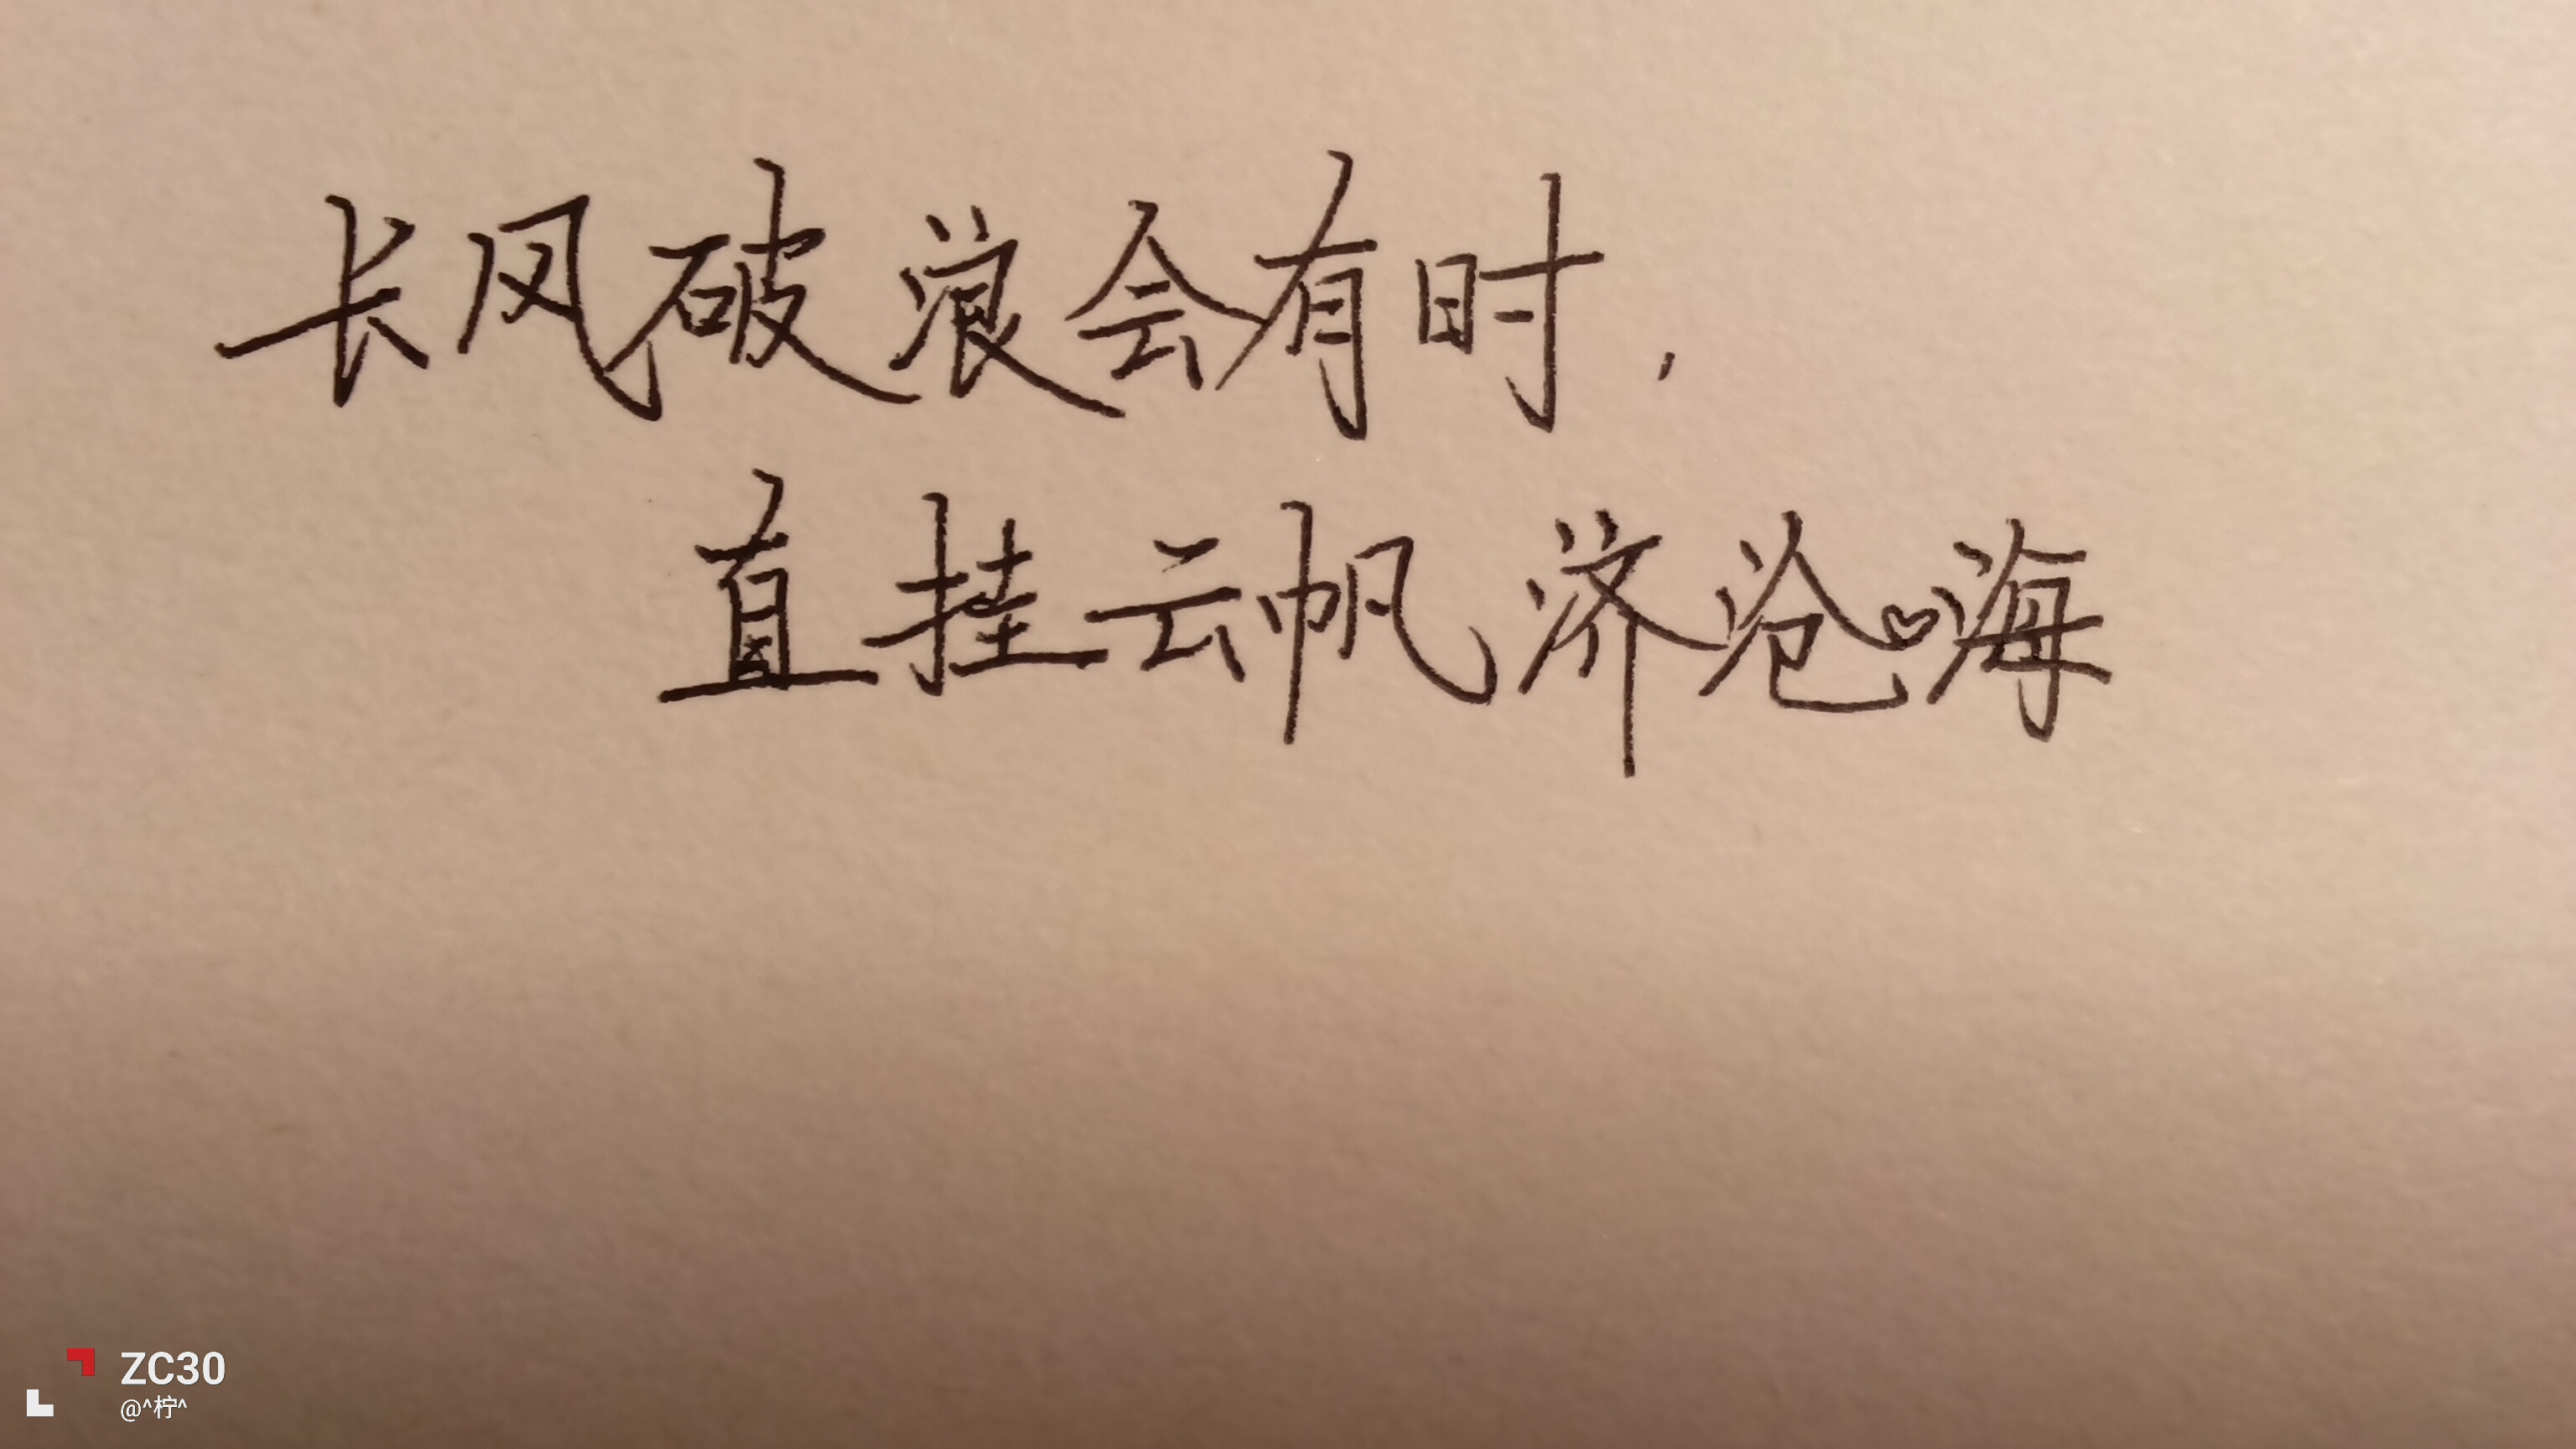 长风破浪会有时,
直挂云帆济沧海
ZC30
@^柠^